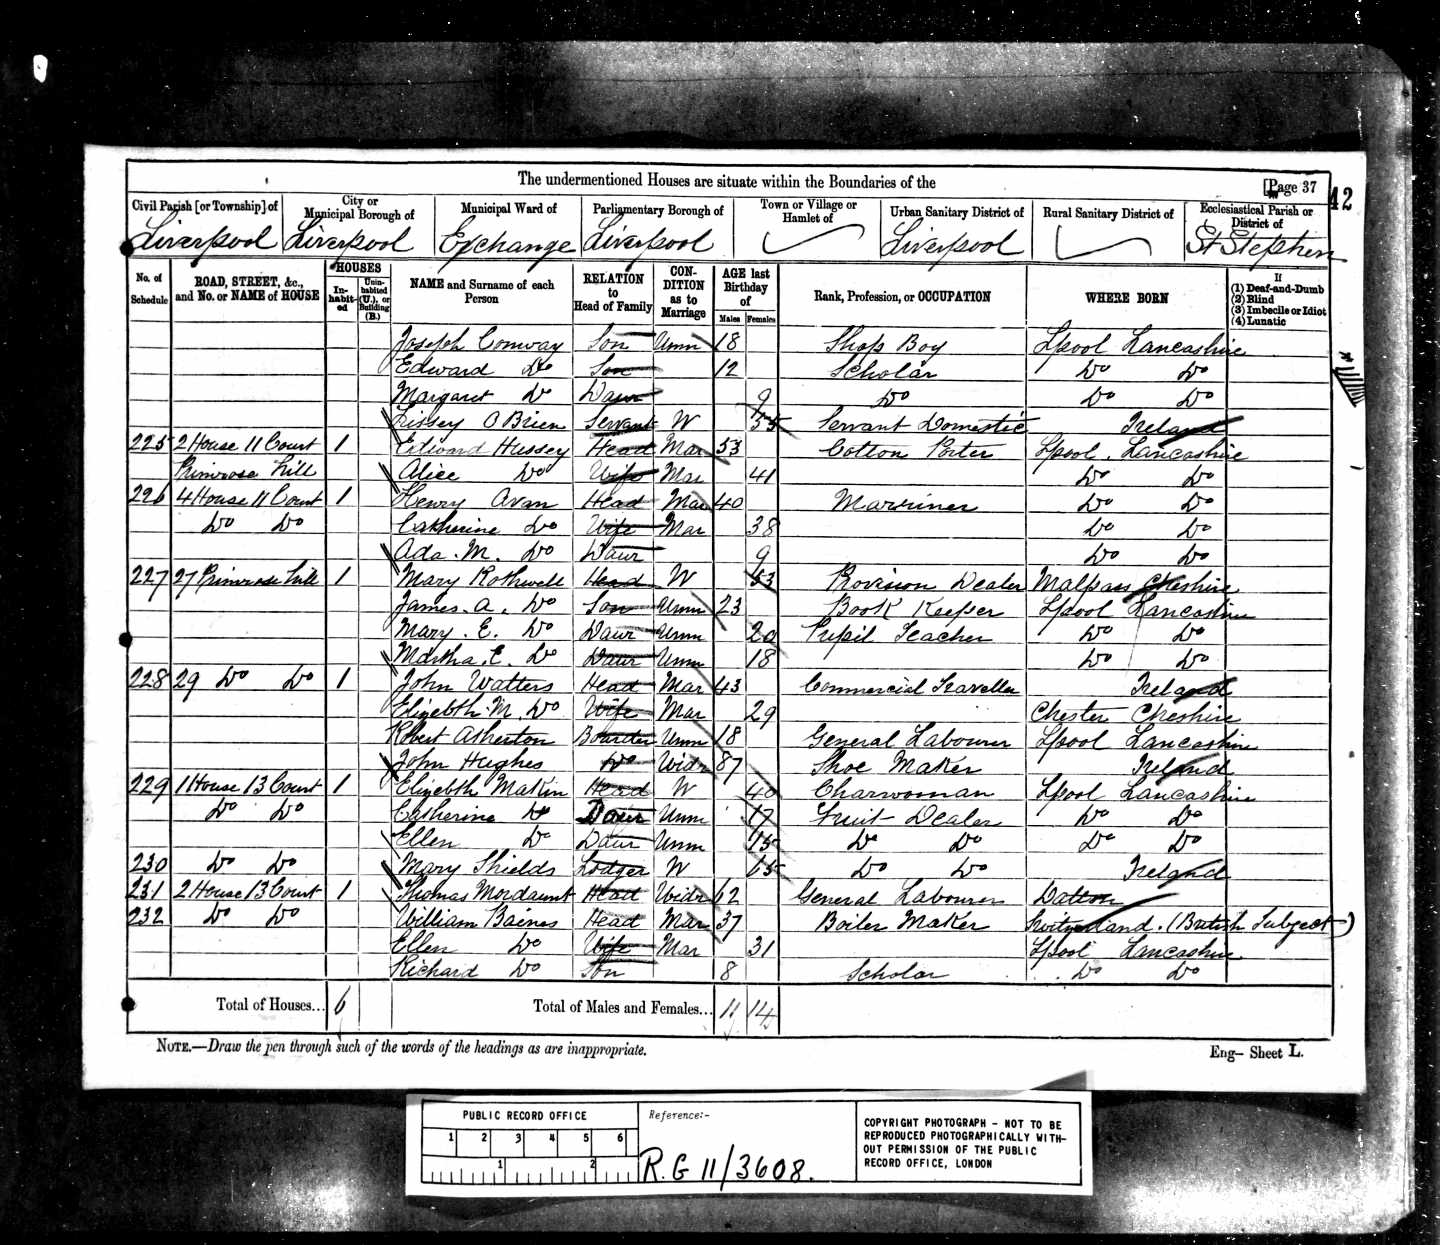 The undermentioned Houses are situate within the Boundaries of the
Page 37
42
Civil Parish [or Township] of
City or Municipal Borough of
Municipal Ward of
Parliamentary Borough of
Town or Village or Hamlet of
Urban Sanitary District of
Rural Sanitary District of
Ecclesiastical Parish or District of
Liverpool Liverpool Exchange Liverpool Liverpool St Stephen
No. of Schedule
ROAD, STREET, &c., and No. or NAME of HOUSE
HOUSES
In-habit-ed
Unin-habited (U.), or Building (B.)
NAME and Surname of each Person
RELATION to Head of Family
CON-DITION as to Marriage
AGE last Birthday of
Males Females
Rank, Profession, or OCCUPATION
WHERE BORN
If
(1) Deaf-and-Dumb
(2) Blind
(3) Imbecile or Idiot
(4) Lunatic
Joseph Conway Son Unm 18 Shop Boy Lpool Lancashire
Edward Do Son 12 Scholar Do Do
Margaret Do Daur 9 Do Do Do
Lissey O Brien Servant W 55 Servant Domestic Ireland
225 2 House 11 Court 1 Edward Hussey Head Mar 53 Cotton Porter Lpool. Lancashire
Primrose hill Alice Do Wife Mar 41 Do Do
226 4 House 11 Court 1 Henry Avan Head Mar 40 Marriner Do Do
Do Do Catherine Do Wife Mar 38 Do Do
Ada. M. Do Daur 9 Do Do
227 27 Primrose hill 1 Mary Rothwell Head W 53 Provision Dealer Malpass Cheshire
James. A. Do Son Unm 23 Book Keeper Lpool Lancashire
Mary. E. Do Daur Unm 20 Pupil Teacher Do Do
Martha. E. Do Daur Unm 18 Do Do
228 29 Do Do 1 John Watters Head Mar 43 Commercial Traveller Ireland
Elizebth. M. Do Wife Mar 29 Chester Cheshire
Robert Asherton Boarder Unm 18 General Labourer Lpool Lancashire
John Hughes Do Widr 87 Shoe Maker Ireland
229 1 House 13 Court 1 Elizebth Makin Head W 40 Charwoman Lpool Lancashire
Do Do Catherine Do Daur Unm 17 Fruit Dealer Do Do
Ellen Do Daur Unm 15 Do Do Do Do
230 Do Do Mary Shields Lodger W 65 Do Do Ireland
231 2 House 13 Court 1 Thomas Mordaunt Head Widr 62 General Labourer Datton
232 Do Do William Baines Head Mar 37 Boiler Maker Switzerland. (British Subject)
Ellen Do Wife Mar 31 Lpool Lancashire
Richard Do Son 8 Scholar Do Do
Total of Houses... 6 Total of Males and Females... 11 14
NOTE.—Draw the pen through such of the words of the headings as are inappropriate.
Eng– Sheet L.
PUBLIC RECORD OFFICE
1 2 3 4 5 6
1 2
Reference:-
R.G 11/3608.
COPYRIGHT PHOTOGRAPH – NOT TO BE
REPRODUCED PHOTOGRAPHICALLY WITH-
OUT PERMISSION OF THE PUBLIC
RECORD OFFICE, LONDON